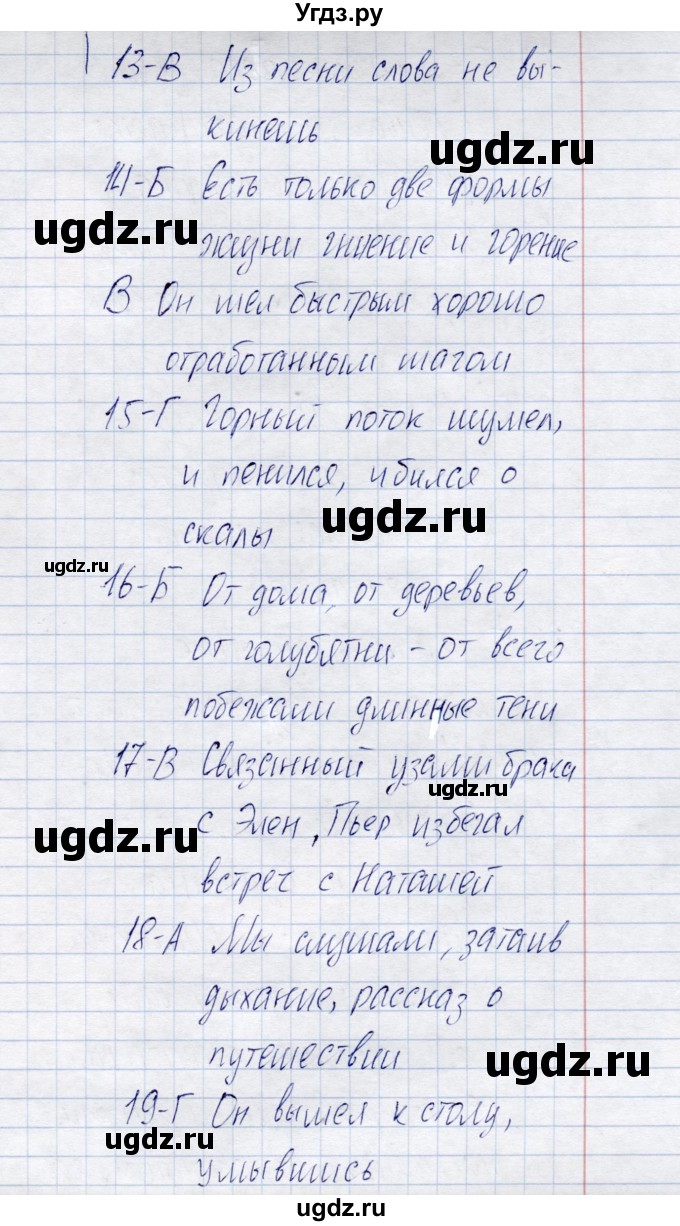 Угдз.ру
13-В Из песни слова не вы-
кинешь
ugdz.ru
14-Б Есть только две формы
ugdz.ru
жизни гниение и горение
В Он шел быстрым хорошо
отработанным шагом
15-Г Горный поток шумел,
и пенился, и бился о
ugdz.ru
скалы
ugdz.ru
16-Б От дома, от деревьев,
от голубятни - от всего
побежали длинные тени
17-В Связанный узами брака
ugdz.ru
с Элен, Пьер избегал
ugdz.ru
встреч с Наташей
18-А Мы слушали, затаив
дыхание, рассказ о
путешествии
ugdz.ru
19-Г Он вышел к столу,
ugdz.ru
умывшись
ugdz.ru